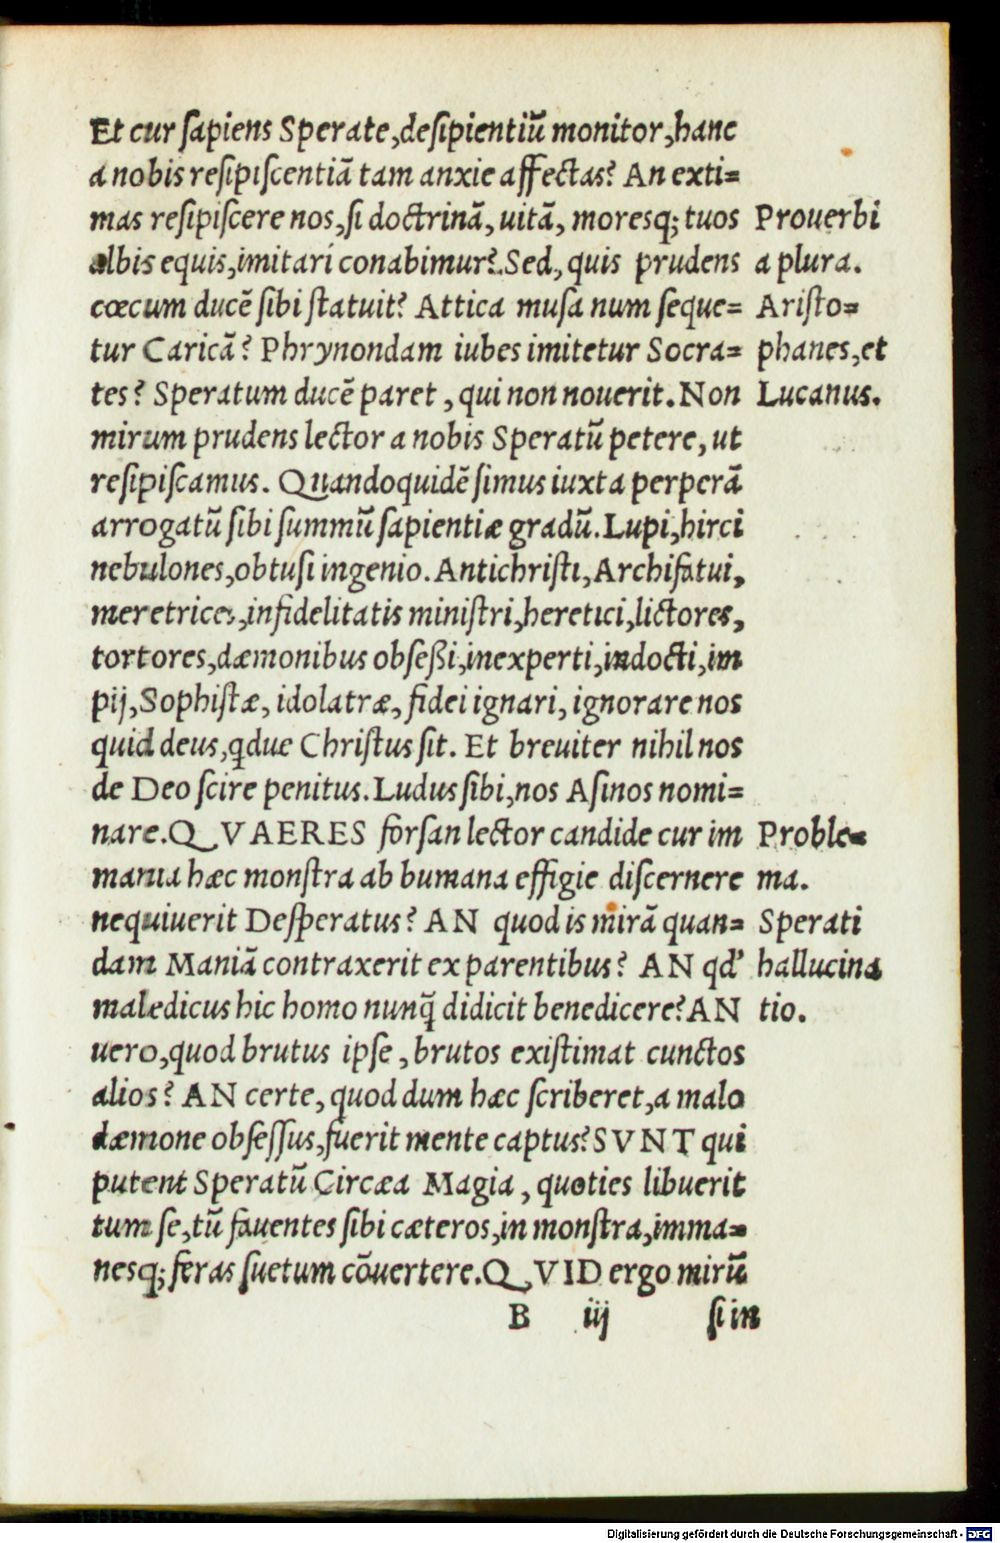 Et cur ſapiens Sperate,deſipientiū monitor,hanc
a nobis reſipiſcentiā tam anxie affectas? An exti=
mas reſipiſcere nos,ſi doctrinā, uitā, moresq; tuos
albis equis,imitari conabimur?.Sed, quis prudens
cœcum ducē ſibi ſtatuit? Attica muſa num ſeque=
tur Caricā? Phrynondam iubes imitetur Socra=
tes? Speratum ducē paret, qui non nouerit. Non
mirum prudens lector a nobis Speratū petere, ut
reſipiſcamus. Quandoquidē ſimus iuxta perperā
arrogatū ſibi ſummū ſapientiæ gradū. Lupi,hirci
nebulones,obtuſi ingenio. Antichriſti, Archifatui,
meretrices,infidelitatis miniſtri,heretici,lictores,
tortores,dæmonibus obſeßi,inexperti,indocti,im
pij,Sophiſtæ, idolatræ, fidei ignari, ignorare nos
quid deus,q̃due Chriſtus ſit. Et breuiter nihil nos
de Deo ſcire penitus. Ludus ſibi,nos Aſinos nomi=
nare. QVAERES forſan lector candide cur im
mania hæc monſtra ab humana effigie diſcernere
nequiuerit Deſperatus? AN quod is mirā quan=
dam Maniā contraxerit ex parentibus? AN qd'
maledicus hic homo nunq̃ didicit benedicere? AN
uero,quod brutus ipſe, brutos exiſtimat cunctos
alios? AN certe, quod dum hæc ſcriberet,a malo
dæmone obſeſſus,fuerit mente captus? SVNT qui
putent Speratū Circæa Magia, quoties libuerit
tum ſe,tū fauentes ſibi cæteros,in monſtra,imma=
nesq; feras ſuetum cōuertere. QVID ergo mirū
B iij ſi in
Prouerbi
a plura.
Ariſto=
phanes,et
Lucanus.
Proble=
ma.
Sperati
hallucina
tio.
Digitalisierung gefördert durch die Deutsche Forschungsgemeinschaft - DFG